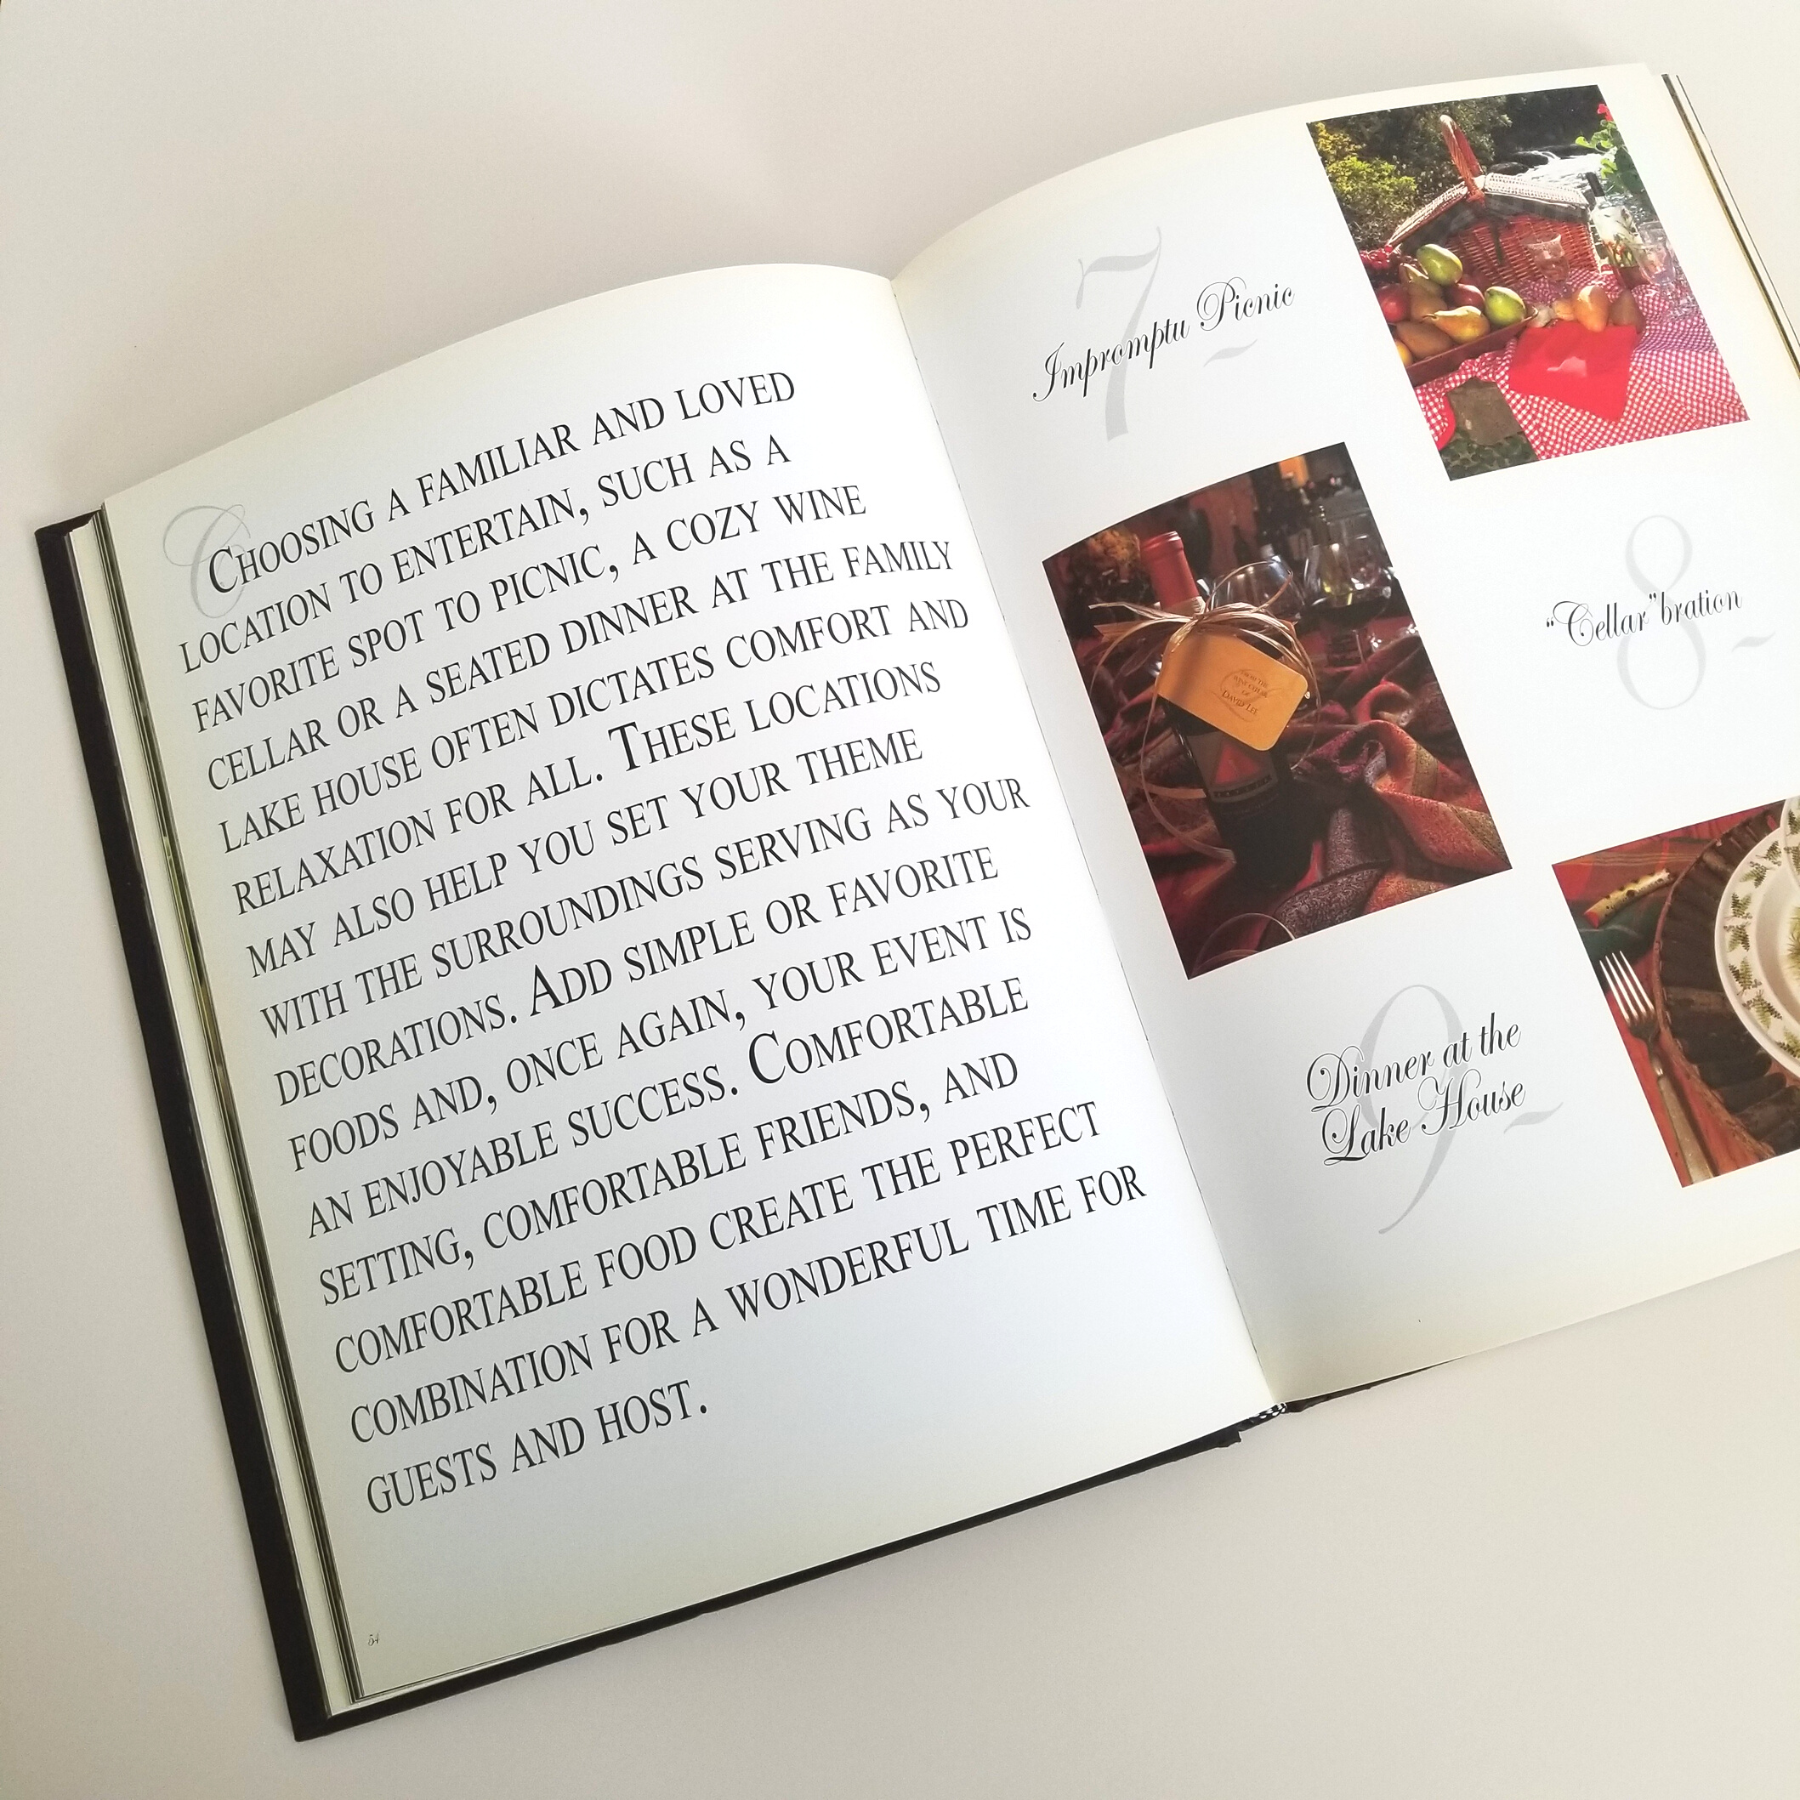 Choosing a familiar and loved
location to entertain, such as a
favorite spot to picnic, a cozy wine
cellar or a seated dinner at the family
lake house often dictates comfort and
relaxation for all. These locations
may also help you set your theme
with the surroundings serving as your
decorations. Add simple or favorite
foods and, once again, your event is
an enjoyable success. Comfortable
setting, comfortable friends, and
comfortable food create the perfect
combination for a wonderful time for
guests and host.
54
7
Impromptu Picnic
8
"Cellar"bration
FROM THE
WINE CELLAR
OF
DAVID LEE
9
Dinner at the
Lake House